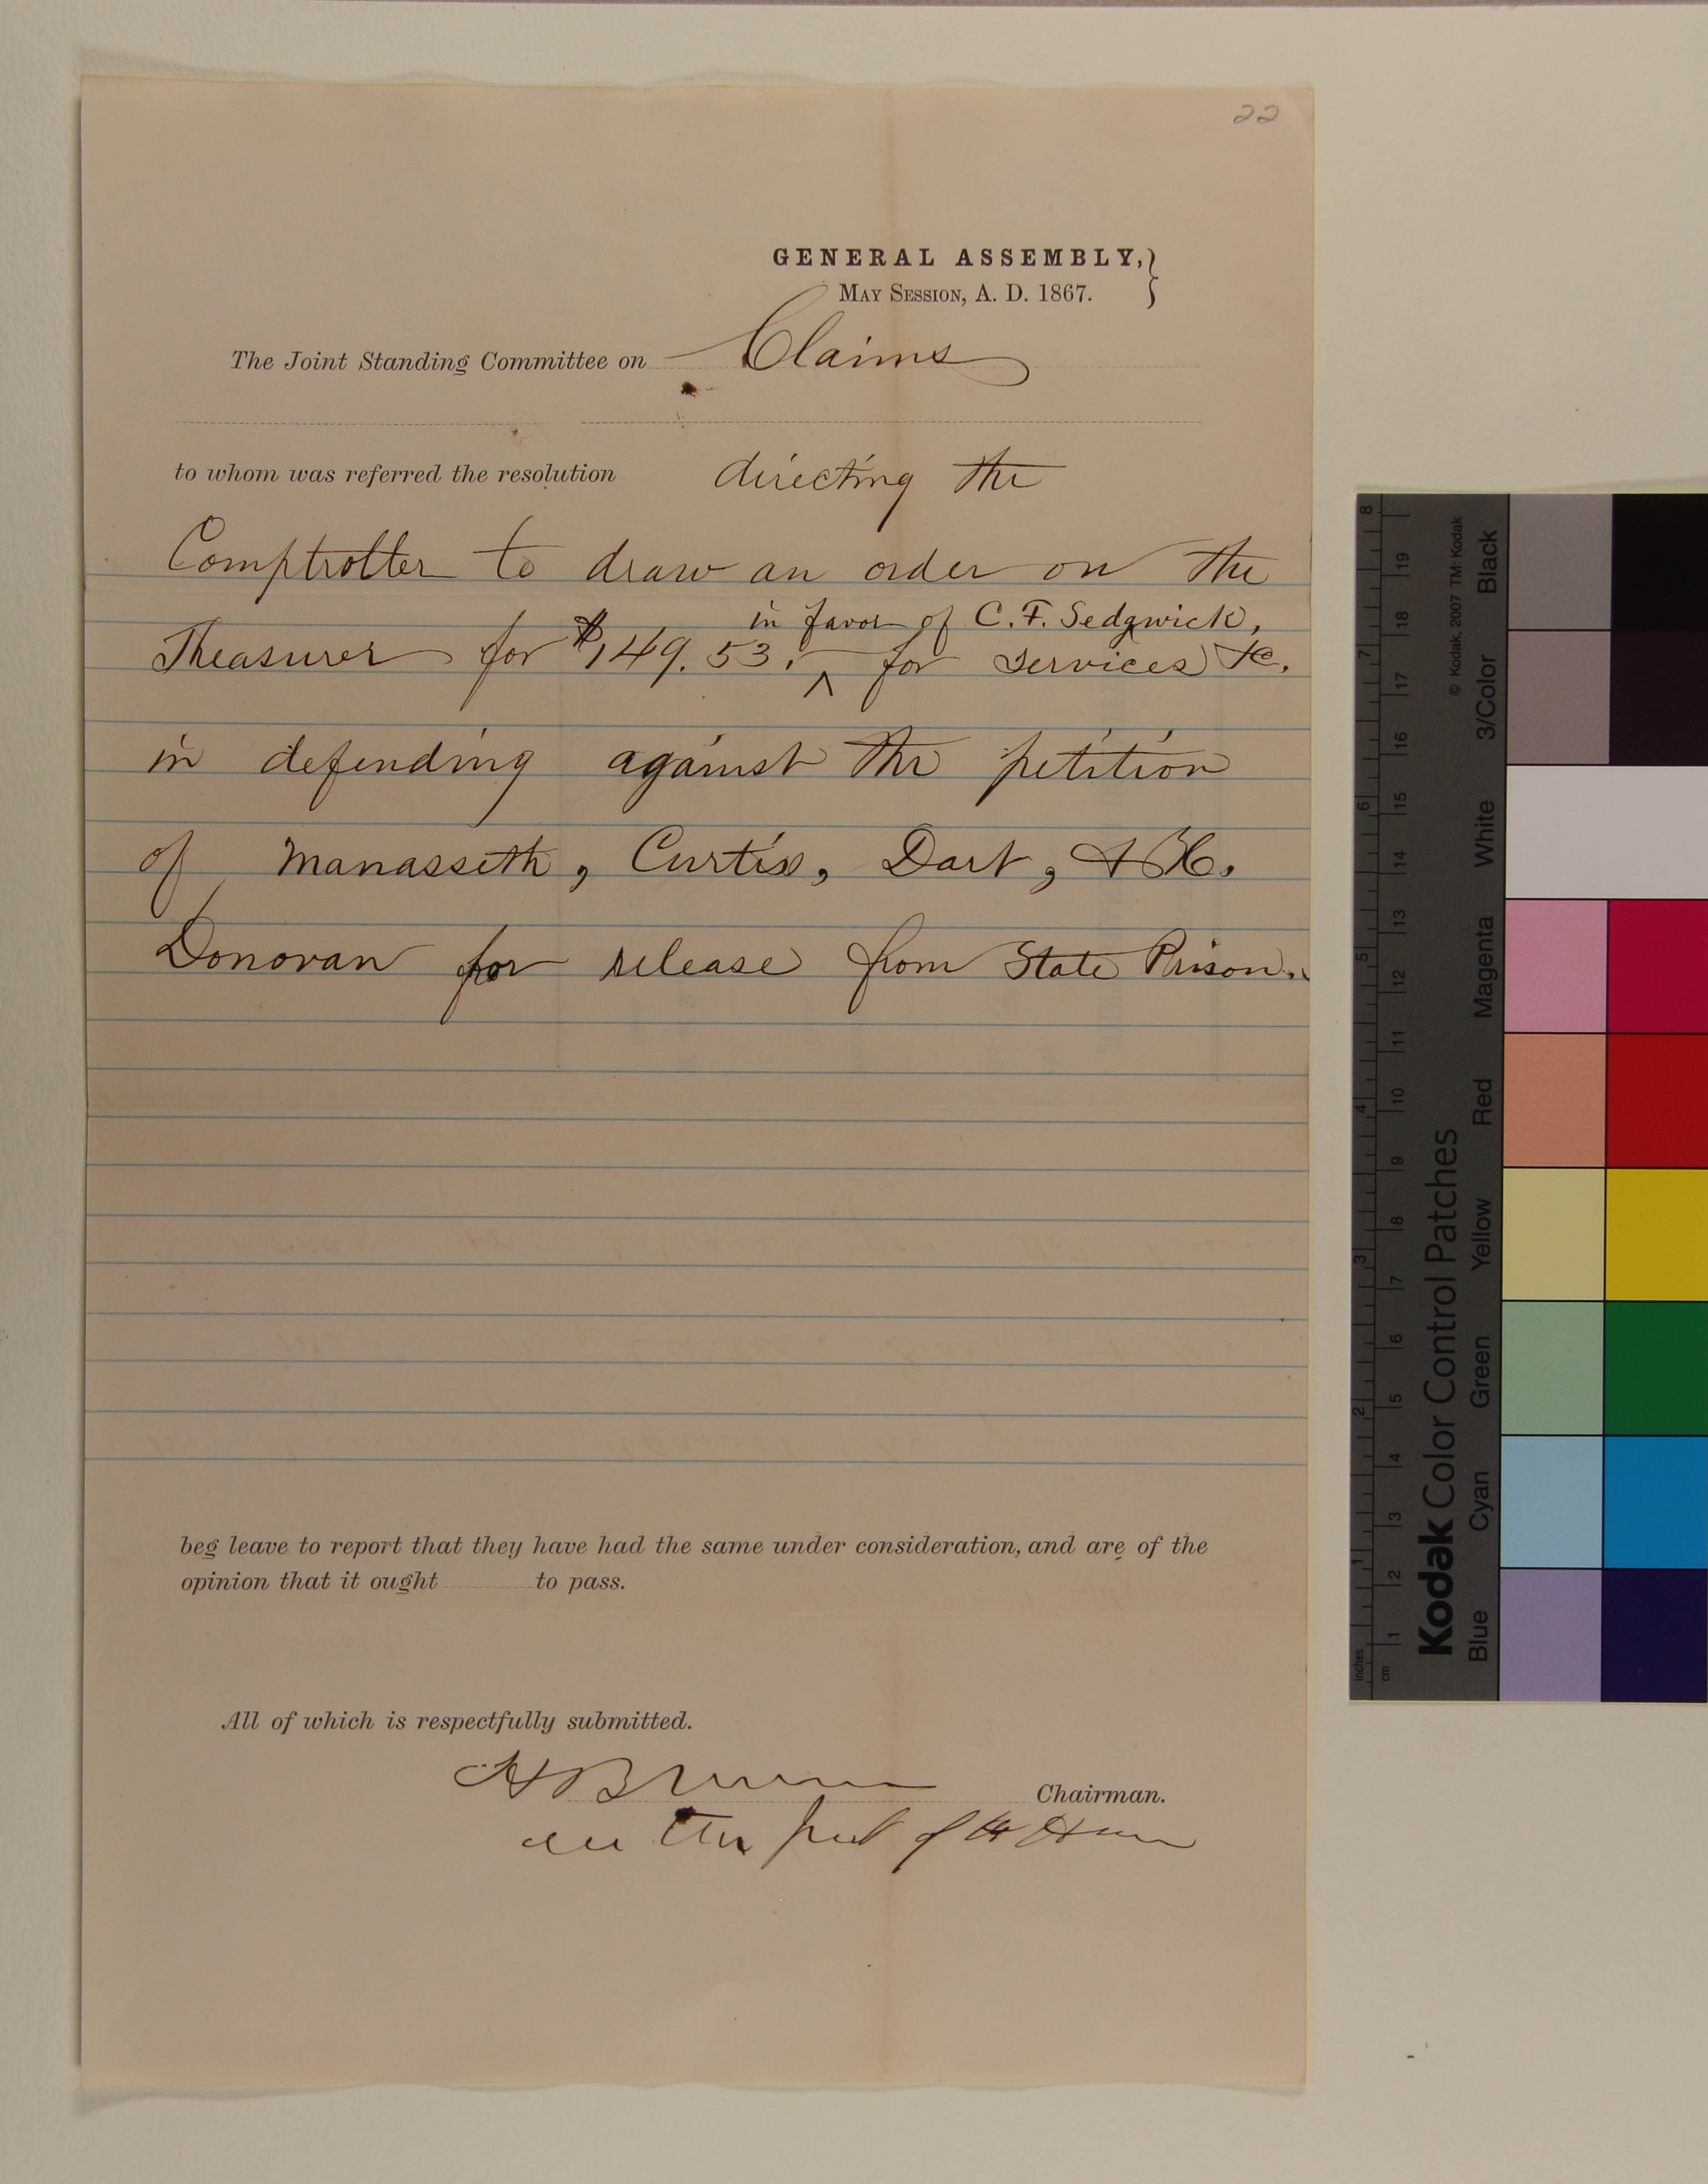 22
GENERAL ASSEMBLY,}
MAY SESSION, A. D. 1867.
The Joint Standing Committee on Claims
to whom was referred the resolution directing the
Comptroller to draw an order on the
in favor of C. F. Sedgwick,
Treasurer for $149.53. ^ for services &c.
in defending against the petition
of Manasseth, Curtiss, Dart, &
Donovan for release from State Prison.
beg leave to report that they have had the same under consideration, and are of the
opinion that it ought to pass.
All of which is respectfully submitted.
Chairman.
on the part of the House
© Kodak, 2007 TM: Kodak
Kodak Color Control Patches
Blue Cyan Green Yellow Red Magenta White 3/Color Black
inches 1 2 3 4 5 6 7 8
cm 1 2 3 4 5 6 7 8 9 10 11 12 13 14 15 16 17 18 19